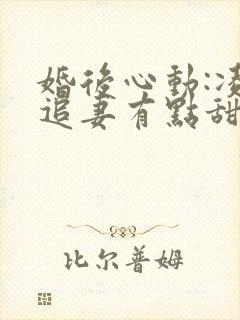 婚後心動:凌
追妻有點甜
比尔普姆